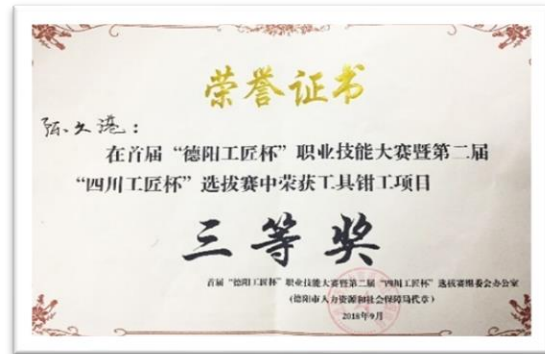 荣誉证书
在首届“德阳工匠杯”职业技能大赛暨第二届
“四川工匠杯”选拔赛中荣获工具钳工项目
三等奖
首届“德阳工匠杯”职业技能大赛暨第二届“四川工匠杯”选拔赛组委会办公室
(德阳市人力资源和社会保障局代章)
2018年9月